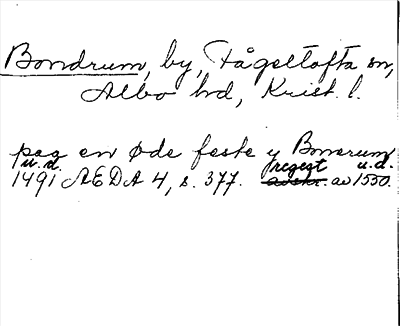 Bondrum, by, Fågeltofta sn,
Albo hd, Krist. l.
paa en øde feste y Bonerum
u.d. regest u.d.
1491 AEDA 4, s. 377. av 1550.